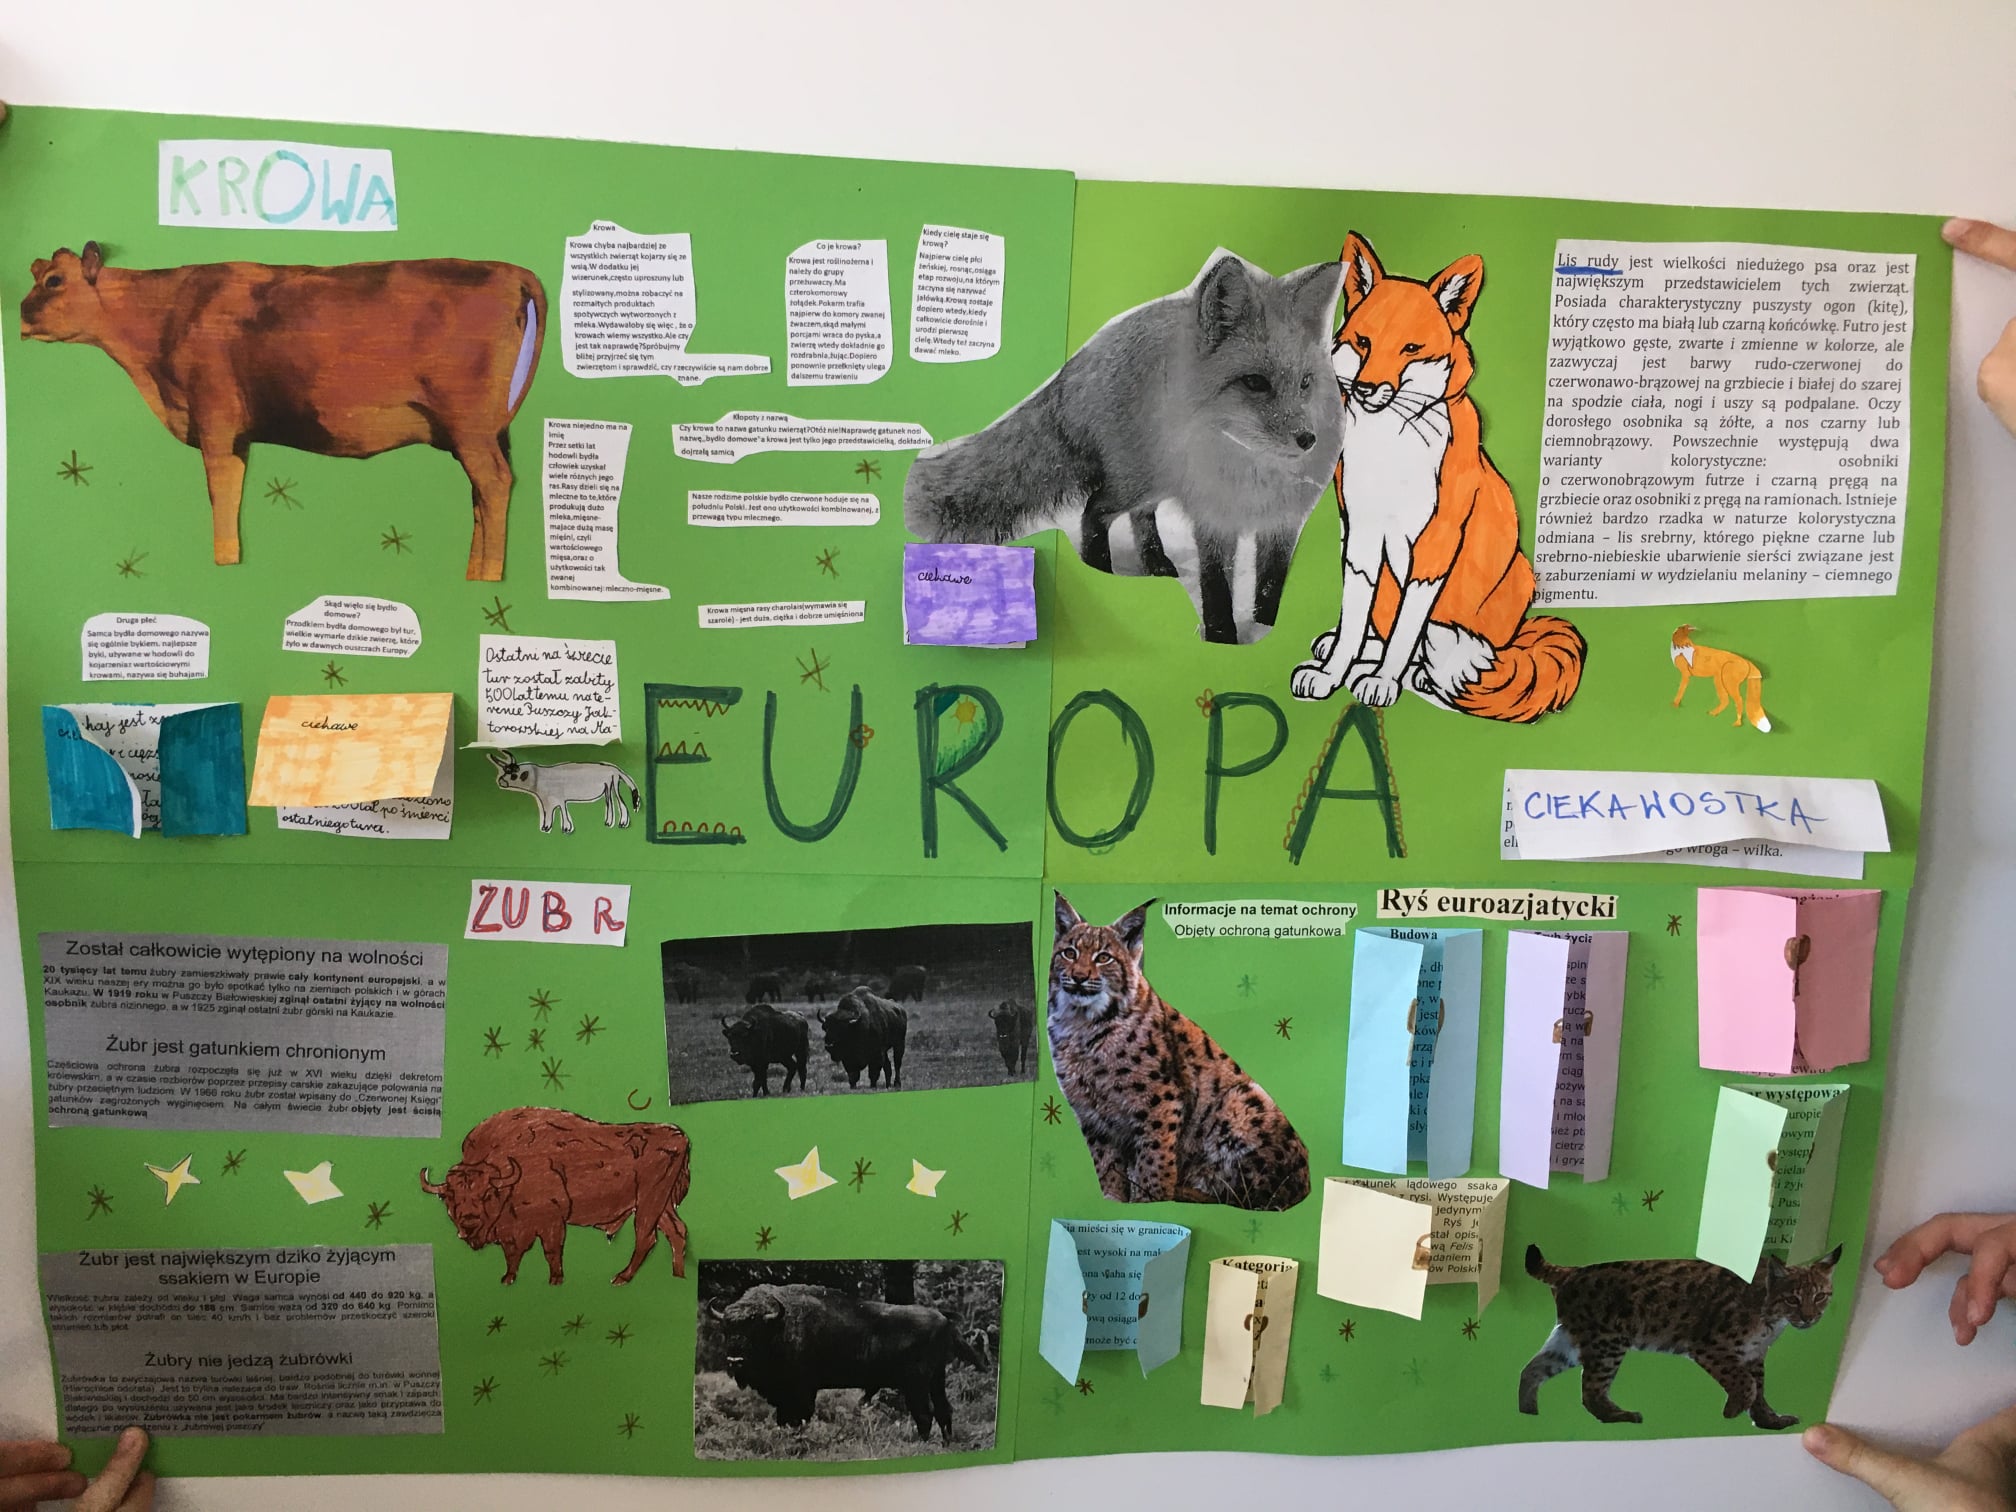 KROWA
Krowa
Krowa chyba najbardziej ze
wszystkich zwierząt kojarzy się ze
wsią.W dodatku jej
wizerunek,często uproszony lub
stylizowany,można zobaczyć na
rozmaitych produktach
spożywczych wytworzonych z
mleka.Wydawałoby się więc , że o
krowach wiemy wszystko.Ale czy
jest tak naprawdę?Spróbujmy
bliżej przyjrzeć się tym
zwierzętom i sprawdzić, czy rzeczywiście są nam dobrze
znane.
Co je krowa?
Krowa jest roślinożerna i
należy do grupy
przeżuwaczy.Ma
czterokomorowy
żołądek.Pokarm trafia
najpierw do komory zwanej
żwaczem,skąd małymi
porcjami wraca do pyska,a
zwierzę wtedy dokładnie go
rozdrabnia,żując.Dopiero
ponownie przełknięty ulega
dalszemu trawieniu
Kiedy cielę staje się
krową?
Najpierw cielę płci
żeńskiej, rosnąc,osiąga
etap rozwoju,na którym
zaczyna się nazywać
jałówką.Krową zostaje
dopiero wtedy,kiedy
całkowicie dorośnie i
urodzi pierwszę
cielę.Wtedy też zaczyna
dawać mleko.
Krowa niejedno ma na
imię
Przez setki lat
hodowli bydła
człowiek uzyskał
wiele różnych jego
ras.Rasy dzieli się na
mleczne to te,które
produkują dużo
mleka,mięsne-
mające dużą masę
mięśni, czyli
wartościowego
mięsa,oraz o
użytkowości tak
zwanej
kombinowanej:mleczno-mięsne.
Kłopoty z nazwą
Czy krowa to nazwa gatunku zwierząt?Otóż nie!Naprawdę gatunek nosi
nazwę„bydło domowe”a krowa jest tylko jego przedstawicielką, dokładnie
dojrzałą samicą
Nasze rodzime polskie bydło czerwone hoduje się na
południu Polski. Jest ono użytkowości kombinowanej, z
przewagą typu mlecznego.
Krowa mięsna rasy charolais(wymawia się
szarolé) - jest duża, ciężka i dobrze umięśniona
Druga płeć
Samca bydła domowego nazywa
się ogólnie bykiem, najlepsze
byki, używane w hodowli do
kojarzenia z wartościowymi
krowami, nazywa się buhajami.
Skąd więło się bydło
domowe?
Przodkiem bydła domowego był tur,
wielkie wymarłe dzikie zwierzę, które
żyło w dawnych puszczach Europy.
Ostatni na świecie
tur został zabity
500lat temu na te-
renie Puszczy Jak-
torowskiej na Ma-
ciekawe
ciekawe
haj jest
po śmierci
ostatniego tura.
EUROPA
Lis rudy jest wielkości niedużego psa oraz jest
największym przedstawicielem tych zwierząt.
Posiada charakterystyczny puszysty ogon (kitę),
który często ma białą lub czarną końcówkę. Futro jest
wyjątkowo gęste, zwarte i zmienne w kolorze, ale
zazwyczaj jest barwy rudo-czerwonej do
czerwonawo-brązowej na grzbiecie i białej do szarej
na spodzie ciała, nogi i uszy są podpalane. Oczy
dorosłego osobnika są żółte, a nos czarny lub
ciemnobrązowy. Powszechnie występują dwa
warianty kolorystyczne: osobniki
o czerwonobrązowym futrze i czarną pręgą na
grzbiecie oraz osobniki z pręgą na ramionach. Istnieje
również bardzo rzadka w naturze kolorystyczna
odmiana – lis srebrny, którego piękne czarne lub
srebrno-niebieskie ubarwienie sierści związane jest
z zaburzeniami w wydzielaniu melaniny – ciemnego
pigmentu.
CIEKAWOSTKA
wroga – wilka.
ZUBR
Został całkowicie wytępiony na wolności
20 tysięcy lat temu żubry zamieszkiwały prawie cały kontynent europejski, a w
XIX wieku naszej ery można go było spotkać tylko na ziemiach polskich i w górach
Kaukazu. W 1919 roku w Puszczy Białowieskiej zginął ostatni żyjący na wolności
osobnik żubra nizinnego, a w 1925 zginął ostatni żubr górski na Kaukazie.
Żubr jest gatunkiem chronionym
Częściowa ochrona żubra rozpoczęła się już w XVI wieku dzięki dekretom
królewskim, a w czasie rozbiorów poprzez przepisy carskie zakazujące polowania na
żubry przeciętnym ludziom. W 1966 roku żubr został wpisany do „Czerwonej Księgi”
gatunków zagrożonych wyginięciem. Na całym świecie żubr objęty jest ścisłą
ochroną gatunkową
Żubr jest największym dziko żyjącym
ssakiem w Europie
Wielkość żubra zależy od wieku i płci. Waga samca wynosi od 440 do 920 kg, a
wysokość w kłębie dochodzi do 188 cm. Samice ważą od 320 do 640 kg. Pomimo
takich rozmiarów potrafi on biec 40 km/h i bez problemów przeskoczyć szeroki
strumień lub płot.
Żubry nie jedzą żubrówki
Żubrówka to zwyczajowa nazwa turówki leśnej, bardzo podobnej do turówki wonnej
(Hierochloe odorata). Jest to bylina należąca do traw. Rośnie licznie m.in. w Puszczy
Białowieskiej i dochodzi do 50 cm wysokości. Ma bardzo intensywny smak i zapach,
dlatego po wysuszeniu używana jest jako środek leczniczy oraz jako przyprawa do
wódek i likierów. Żubrówka nie jest pokarmem żubrów, a nazwę taką zawdzięcza
wyłącznie z „żubrowej puszczy”
Informacje na temat ochrony
Objęty ochroną gatunkową.
Ryś euroazjatycki
Budowa
życia
występowa
europie
gatunek lądowego ssaka
rysi. Występuje
jedynym
Ryś
Felis
Polski
mieści się w granicach
wysoki na
waha się
od 12 do
osiąga
może być
Kategoria